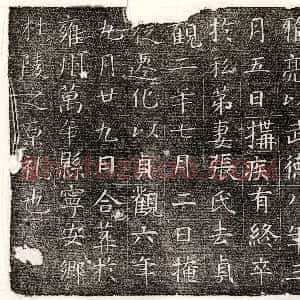 亮以武德八年
月五日搆疾有終卒
於私第妻張氏去貞
觀二年七月二日
遷化以貞觀六年
九月廿九日合葬於
雍州萬年縣寧安鄉
杜陵之原也